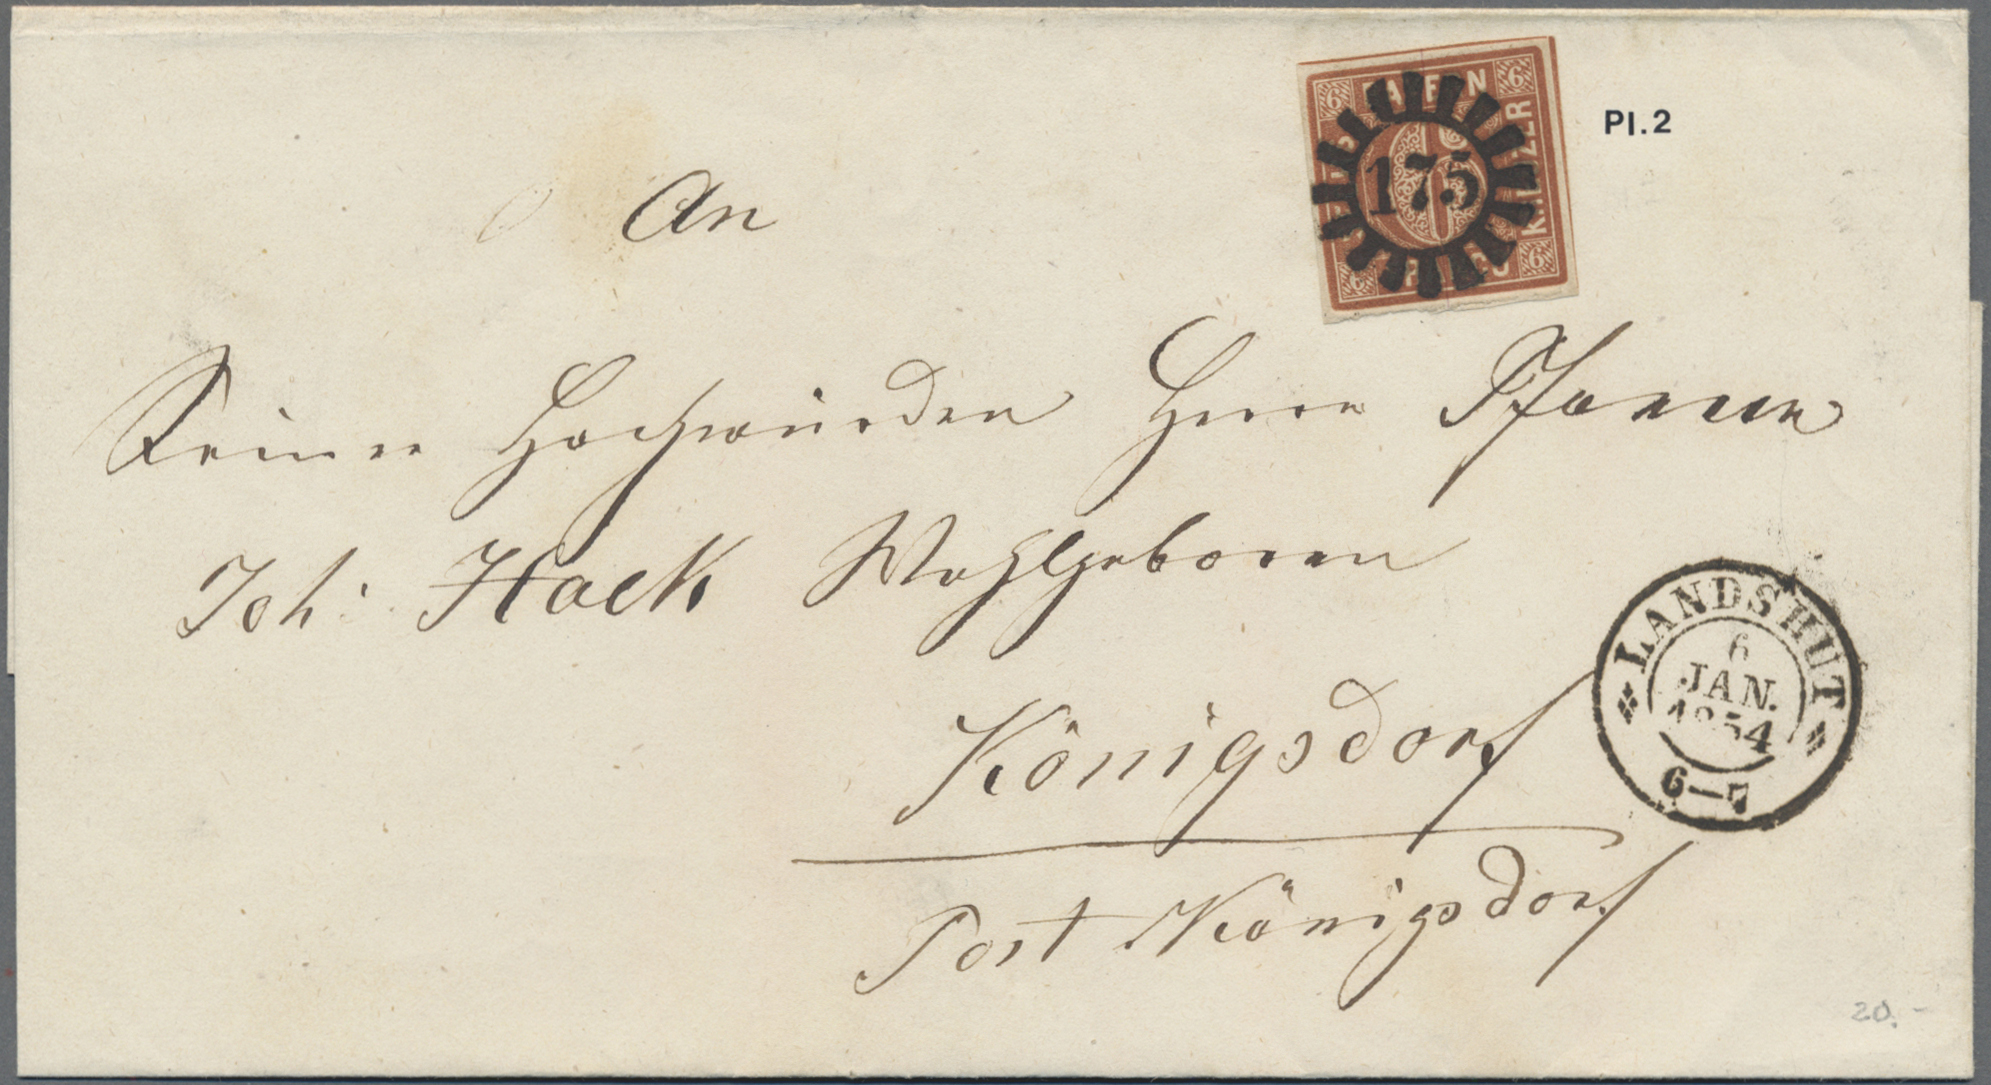 BAYERN
6
6
6
6
KREUZER
FRANCO
175
Pl.2
An
Seiner Hochwürden Herrn Pfarrer
Joh: Hack Wohlgeboren
Königsdorf
Post Königsdorf
LANDSHUT
6
JAN.
1854
6—7
20.-